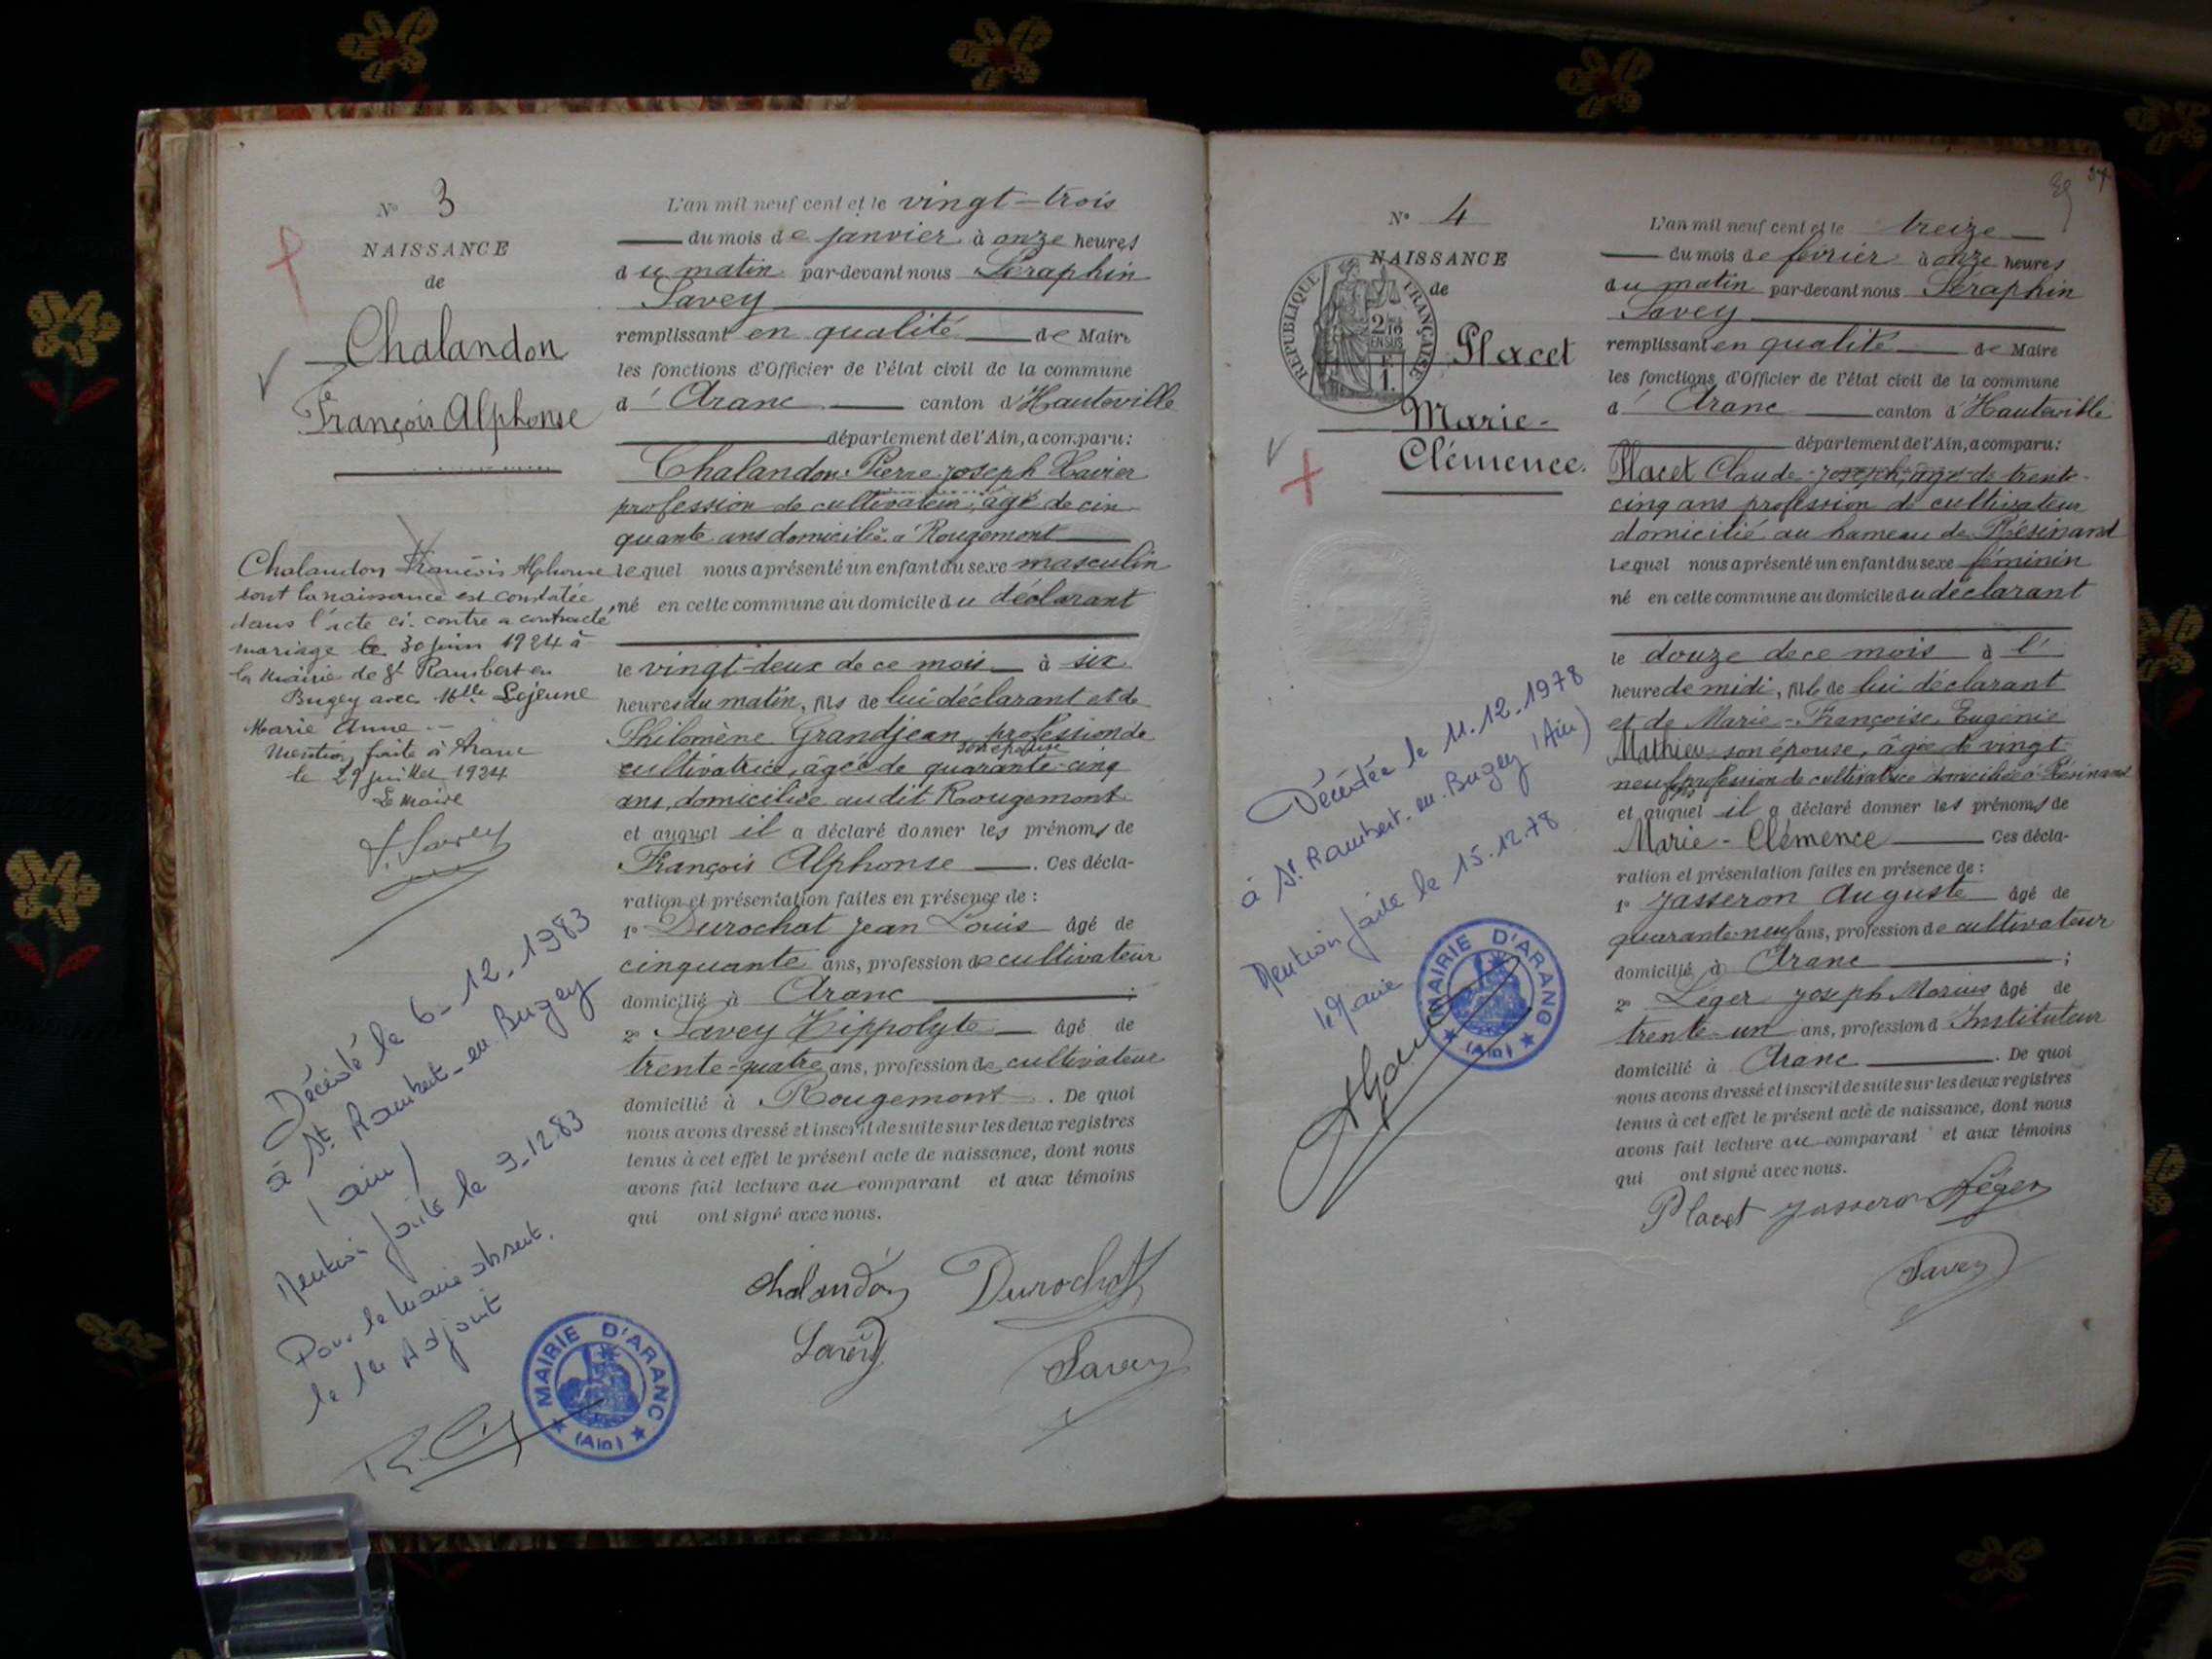 N° 3
NAISSANCE
de
Chalandon
François Alphonse
Chalandon François Alphonse
dont la naissance est constatée
dans l'acte ci-contre a contracté
mariage le 30 juin 1924 à
la mairie de St Rambert en
Bugey avec Melle Lejeune
Marie Anne.-
Mention faite à Aranc
le 29 juillet 1924
Le Maire
S. Savey
Décédé le 6-12-1983
à St. Rambert-en-Bugey
(Ain)
Mention faite le 9-12-83
Pour le Maire absent.
le 1er Adjoint
MAIRIE D'ARANC
(Ain)
L'an mil neuf cent et le vingt-trois
du mois de janvier à onze heures
du matin par-devant nous Séraphin
Savey
remplissant en qualité de Maire
les fonctions d'Officier de l'état civil de la commune
d' Aranc canton d'Hauteville
département de l'Ain, a comparu:
Chalandon Pierre Joseph Xavier
profession de cultivateur, âgé de cin-
quante ans domicilié à Rougemont
lequel nous a présenté un enfant du sexe masculin
né en cette commune au domicile du déclarant
le vingt-deux de ce mois à six
heures du matin, fils de lui déclarant et de
Philomène Grandjean, profession de
son épouse
cultivatrice, âgée de quarante-cinq
ans, domiciliée audit Rougemont
et auquel il a déclaré donner les prénoms de
François Alphonse. Ces décla-
ration et présentation faites en présence de :
1° Durochat Jean Louis âgé de
cinquante ans, profession de cultivateur
domicilié à Aranc ;
2° Savey Hippolyte âgé de
trente-quatre ans, profession de cultivateur
domicilié à Rougemont. De quoi
nous avons dressé et inscrit de suite sur les deux registres
tenus à cet effet le présent acte de naissance, dont nous
avons fait lecture au comparant et aux témoins
qui ont signé avec nous.
Chalandon Durochat
Savey Savey
N° 4
NAISSANCE
de
RÉPUBLIQUE FRANÇAISE
2/10
EN SUS
F
1.
Placet
Marie-
Clémence.
Décédée le 11.12.1978
à St. Rambert-en-Bugey (Ain)
Mention faite le 15.12.78
le Maire
MAIRIE D'ARANC
(Ain)
37
L'an mil neuf cent et le treize
du mois de février à onze heures
du matin par-devant nous Séraphin
Savey
remplissant en qualité de Maire
les fonctions d'Officier de l'état civil de la commune
d' Aranc canton d'Hauteville
département de l'Ain, a comparu:
Placet Claude-Joseph, âgé de trente-
cinq ans profession de cultivateur
domicilié au hameau de Résinand
lequel nous a présenté un enfant du sexe féminin
né en cette commune au domicile du déclarant
le douze de ce mois à l'
heure de midi, fille de lui déclarant
et de Marie-Françoise Eugénie
Mathieu son épouse, âgée de vingt-
neuf ans profession de cultivatrice domiciliée à Résinand
et auquel il a déclaré donner les prénoms de
Marie-Clémence Ces décla-
ration et présentation faites en présence de :
1° Jasseron Auguste âgé de
quarante-neuf ans, profession de cultivateur
domicilié à Aranc ;
2° Léger Joseph Marius âgé de
trente-un ans, profession d'Instituteur
domicilié à Aranc. De quoi
nous avons dressé et inscrit de suite sur les deux registres
tenus à cet effet le présent acte de naissance, dont nous
avons fait lecture au comparant et aux témoins
qui ont signé avec nous.
Placet Jasseron Léger
Savey